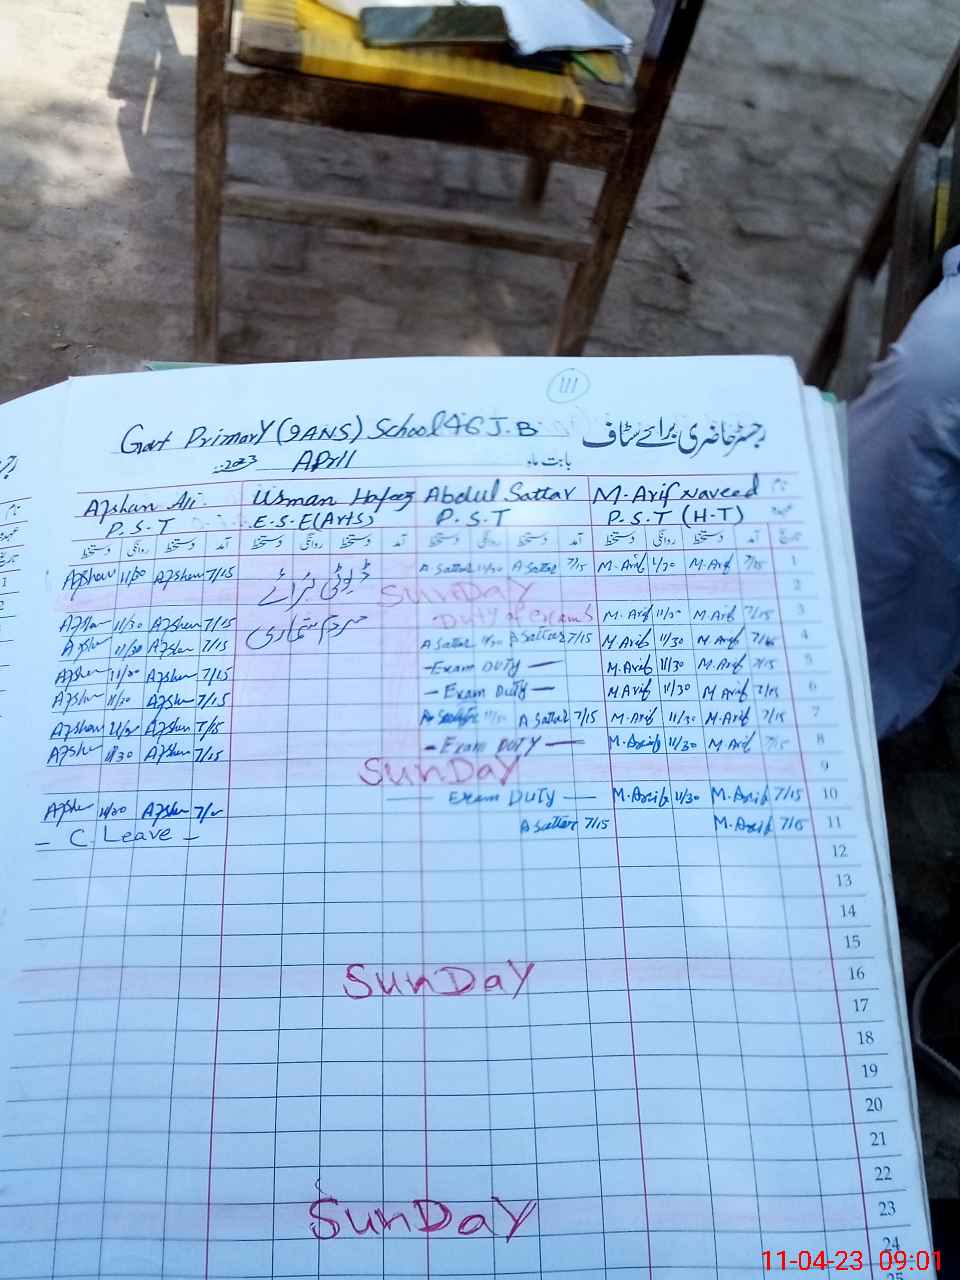 111
Govt Primary (SANS) School 46 J.B رجسٹر حاضری برائے سٹاف
2023 April بابت ماہ
Afshan Ali Usman Hafeez Abdul Sattar M. Arif Naveed نام
P.S.T E.S.E (Arts) P.S.T P.S.T (H-T) عہدہ
دستخط روانگی دستخط آمد دستخط روانگی دستخط آمد دستخط روانگی دستخط آمد دستخط روانگی دستخط آمد تاریخ
Afshan 11/30 Afshan 7/15 ڈیوٹی برائے A Sattar 11/30 A Sattar 7/15 M. Arif 11/30 M. Arif 7/15 1
SUNDAY 2
Afshan 11/30 Afshan 7/15 مردم شماری Duty of Exams M. Arif 11/30 M. Arif 7/15 3
Afshan 11/30 Afshan 7/15 A Sattar 11/30 A Sattar 7/15 M. Arif 11/30 M. Arif 7/15 4
Afshan 11/30 Afshan 7/15 - Exam DUTY - M. Arif 11/30 M. Arif 7/15 5
Afshan 11/30 Afshan 7/15 - Exam DUTY - M. Arif 11/30 M. Arif 7/15 6
Afshan Afshan 7/15 A Sattar 11/30 A Sattar 7/15 M. Arif 11/30 M. Arif 7/15 7
Afshan 11/30 Afshan 7/15 - Exam DUTY - M. Arif 11/30 M. Arif 7/15 8
SUNDAY 9
Afshan 11/30 Afshan - Exam DUTY - M. Arif 11/30 M. Arif 7/15 10
- C. Leave - A Sattar 7/15 M. Arif 7/15 11
12
13
14
15
SUNDAY 16
17
18
19
20
21
22
SUNDAY 23
24
11-04-23 09:01